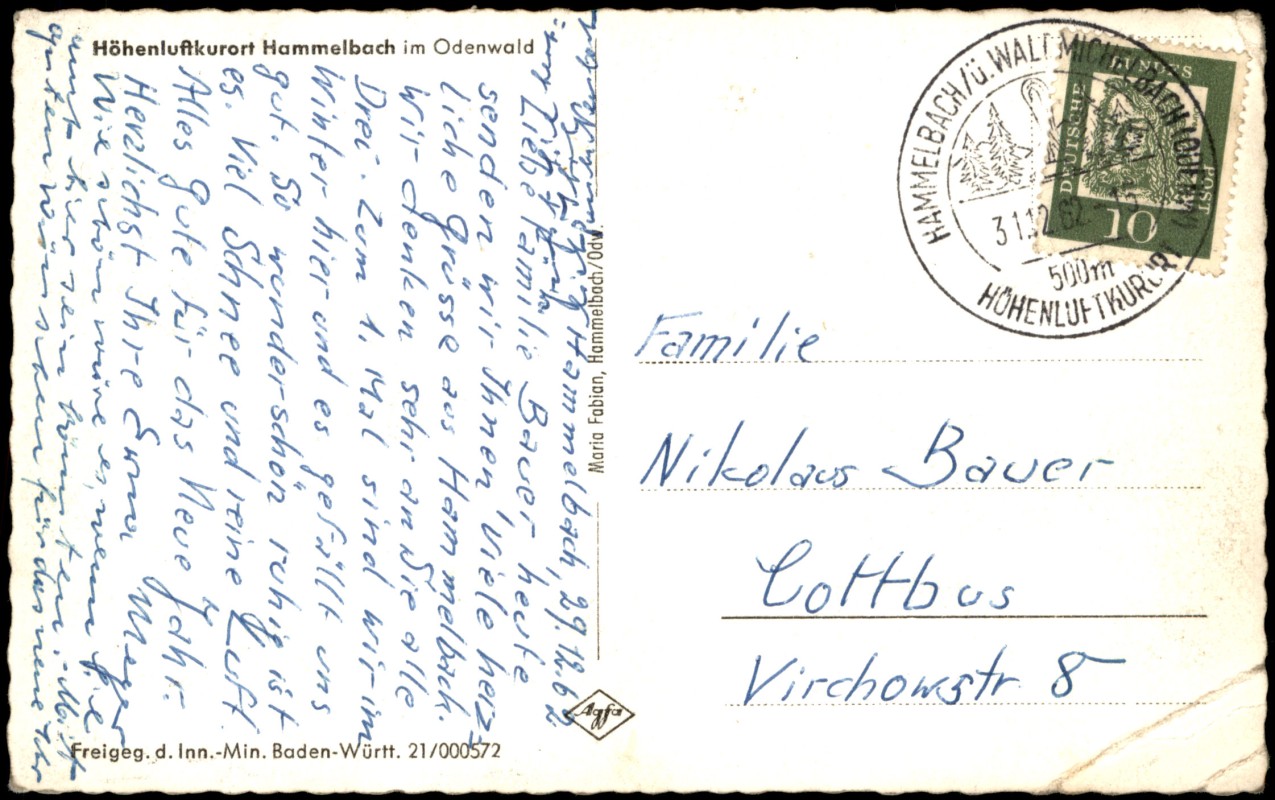 Höhenluftkurort Hammelbach im Odenwald
Hammelbach, 29.12.62
Liebe Familie Bauer, heute
senden wir Ihnen, viele herz-
liche Grüsse aus Hammelbach.
Wir denken sehr an Sie alle
Drei. Zum 1. Mal sind wir im
Winter hier und es gefällt uns
gut. So wunderschön ruhig ist
es. Viel Schnee und reine Luft.
Alles Gute für das Neue Jahr.
Herzlichst Ihre Erna Meyer
Wie schön wäre es, wenn Sie
mit hier sein könnten
wünschen für das neue
Freigeg. d. Inn.-Min. Baden-Württ. 21/000572
Maria Fabian, Hammelbach/Odw.
Agfa
HAMMELBACH/ü. WALDMICHELBACH (ODENW)
31.12.62.-13
500m
HÖHENLUFTKURORT
DEUTSCHE
BUNDES
POST
10
Familie
Nikolaus Bauer
Cottbus
Virchowstr. 8